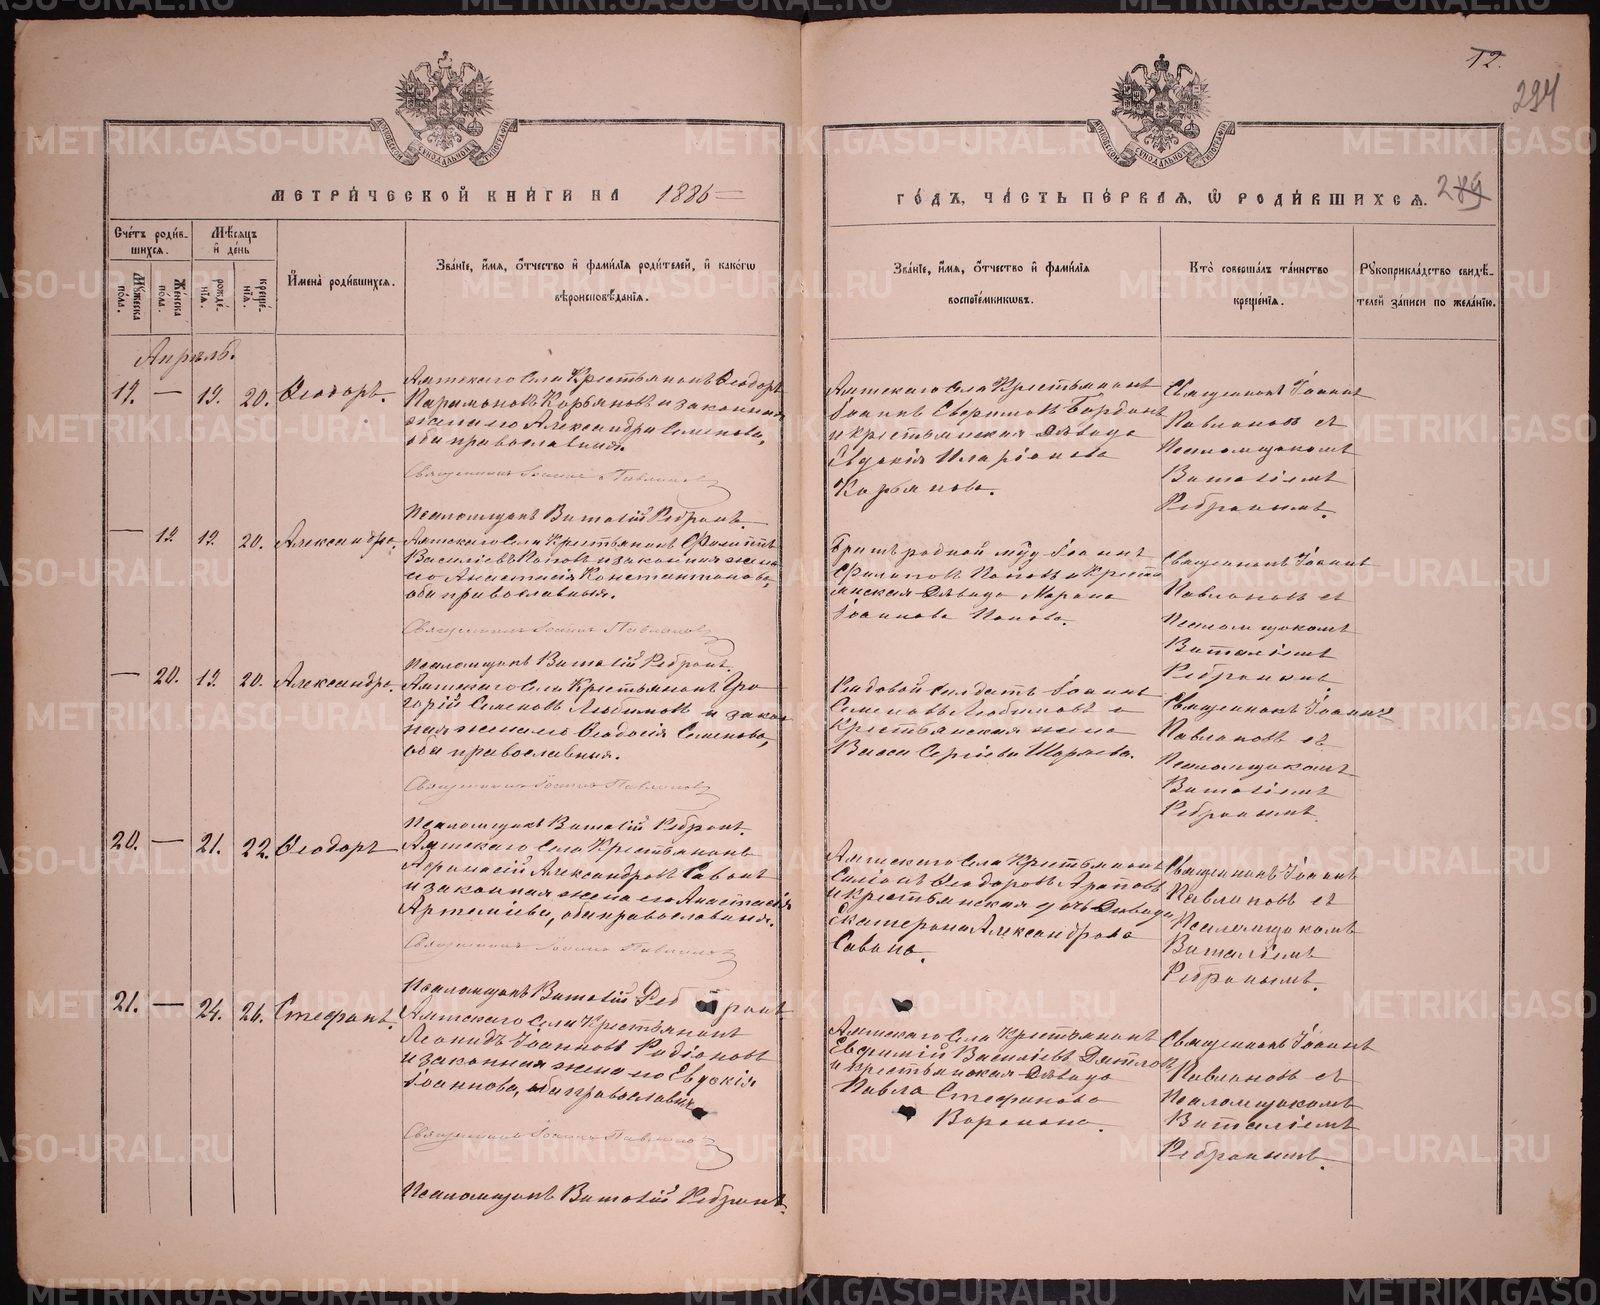 12.
294
289
МЕТРИЧЕСКОЙ КНИГИ НА 1886
ГОДЪ, ЧАСТЬ ПЕРВАЯ, Ѿ РОДИВШИХСЯ.
Счетъ родившихся.
Мужеска пола.
Женска пола.
Мѣсяцъ и день
рожденія.
крещенія.
Имена родившихся.
Званіе, имя, отчество и фамилія родителей, и какогω
вѣроисповѣданія.
Званіе, имя, отчество и фамилія
воспріемникωвъ.
Кто совершалъ таинство
крещенія.
Рукоприкладство свидѣтелей записи по желанію.
Апрѣль.
19. — 19. 20. Ѳеодоръ.
Села Крестьянинъ Ѳеодоръ
и законная
жена его Александра Семенова,
оба православные.
Священникъ Іоаннъ Павлиновъ
Псаломщикъ Виталій Ребринъ.
Села Крестьянинъ
Іоаннъ
и крестьянская дѣвица
Евдокія Иларіонова
Священникъ Іоаннъ
Павлиновъ съ
Псаломщикомъ
Виталіемъ
Ребринымъ.
— 19. 19. 20. Александра.
Села Крестьянинъ Филиппъ
Василіевъ Поповъ и законная жена
его Анастасія Константинова,
оба православные.
Священникъ Іоаннъ Павлиновъ
Псаломщикъ Виталій Ребринъ.
Іоаннъ
Филиповъ Поповъ и крестьянская дѣвица Марина
Іоаннова Попова.
Священникъ Іоаннъ
Павлиновъ съ
Псаломщикомъ
Виталіемъ
Ребринымъ
— 20. 19. 20. Александра.
Села Крестьянинъ Григорій Семеновъ и законная жена его Ѳеодосія Семенова,
оба православные.
Священникъ Іоаннъ Павлиновъ
Псаломщикъ Виталій Ребринъ.
Рядовой солдатъ Іоаннъ
Семеновъ и
Крестьянская жена
Васса Сергіева
Священникъ Іоаннъ
Павлиновъ съ
Псаломщикомъ
Виталіемъ
Ребринымъ.
20. — 21. 22. Ѳеодоръ
Села Крестьянинъ
Афанасій Александровъ Савинъ
и законная жена его Анастасія
Артеміева, оба православные.
Священникъ Іоаннъ Павлиновъ
Псаломщикъ Виталій Ребринъ
Села Крестьянинъ
Ѳеодоровъ
и крестьянская дочь дѣвица
Екатерина Александрова
Савина.
Священникъ Іоаннъ
Павлиновъ съ
Псаломщикомъ
Виталіемъ
Ребринымъ.
21. — 24. 26. Стефанъ.
Села Крестьянинъ
Леонидъ Іоанновъ Родіоновъ
и законная жена его Евдокія
Іоаннова, оба православные
Священникъ Іоаннъ Павлиновъ
Псаломщикъ Виталій Ребринъ.
Села Крестьянинъ
Евфимій Василіевъ Дятловъ
и крестьянская дѣвица
Павла Стефанова
Воронина.
Священникъ Іоаннъ
Павлиновъ съ
Псаломщикомъ
Виталіемъ
Ребринымъ.
METRIKI.GASO-URAL.RU